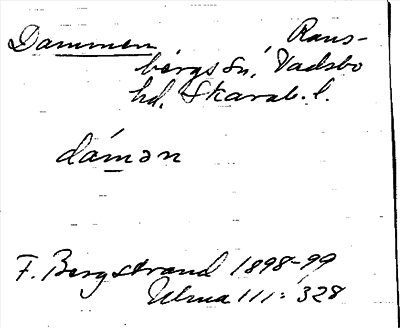 Dammen Rans-
bergs sn, Vadsbo
hd, Skarab. l.
dámən
F. Bergstrand 1898-99
Ulma 111:328